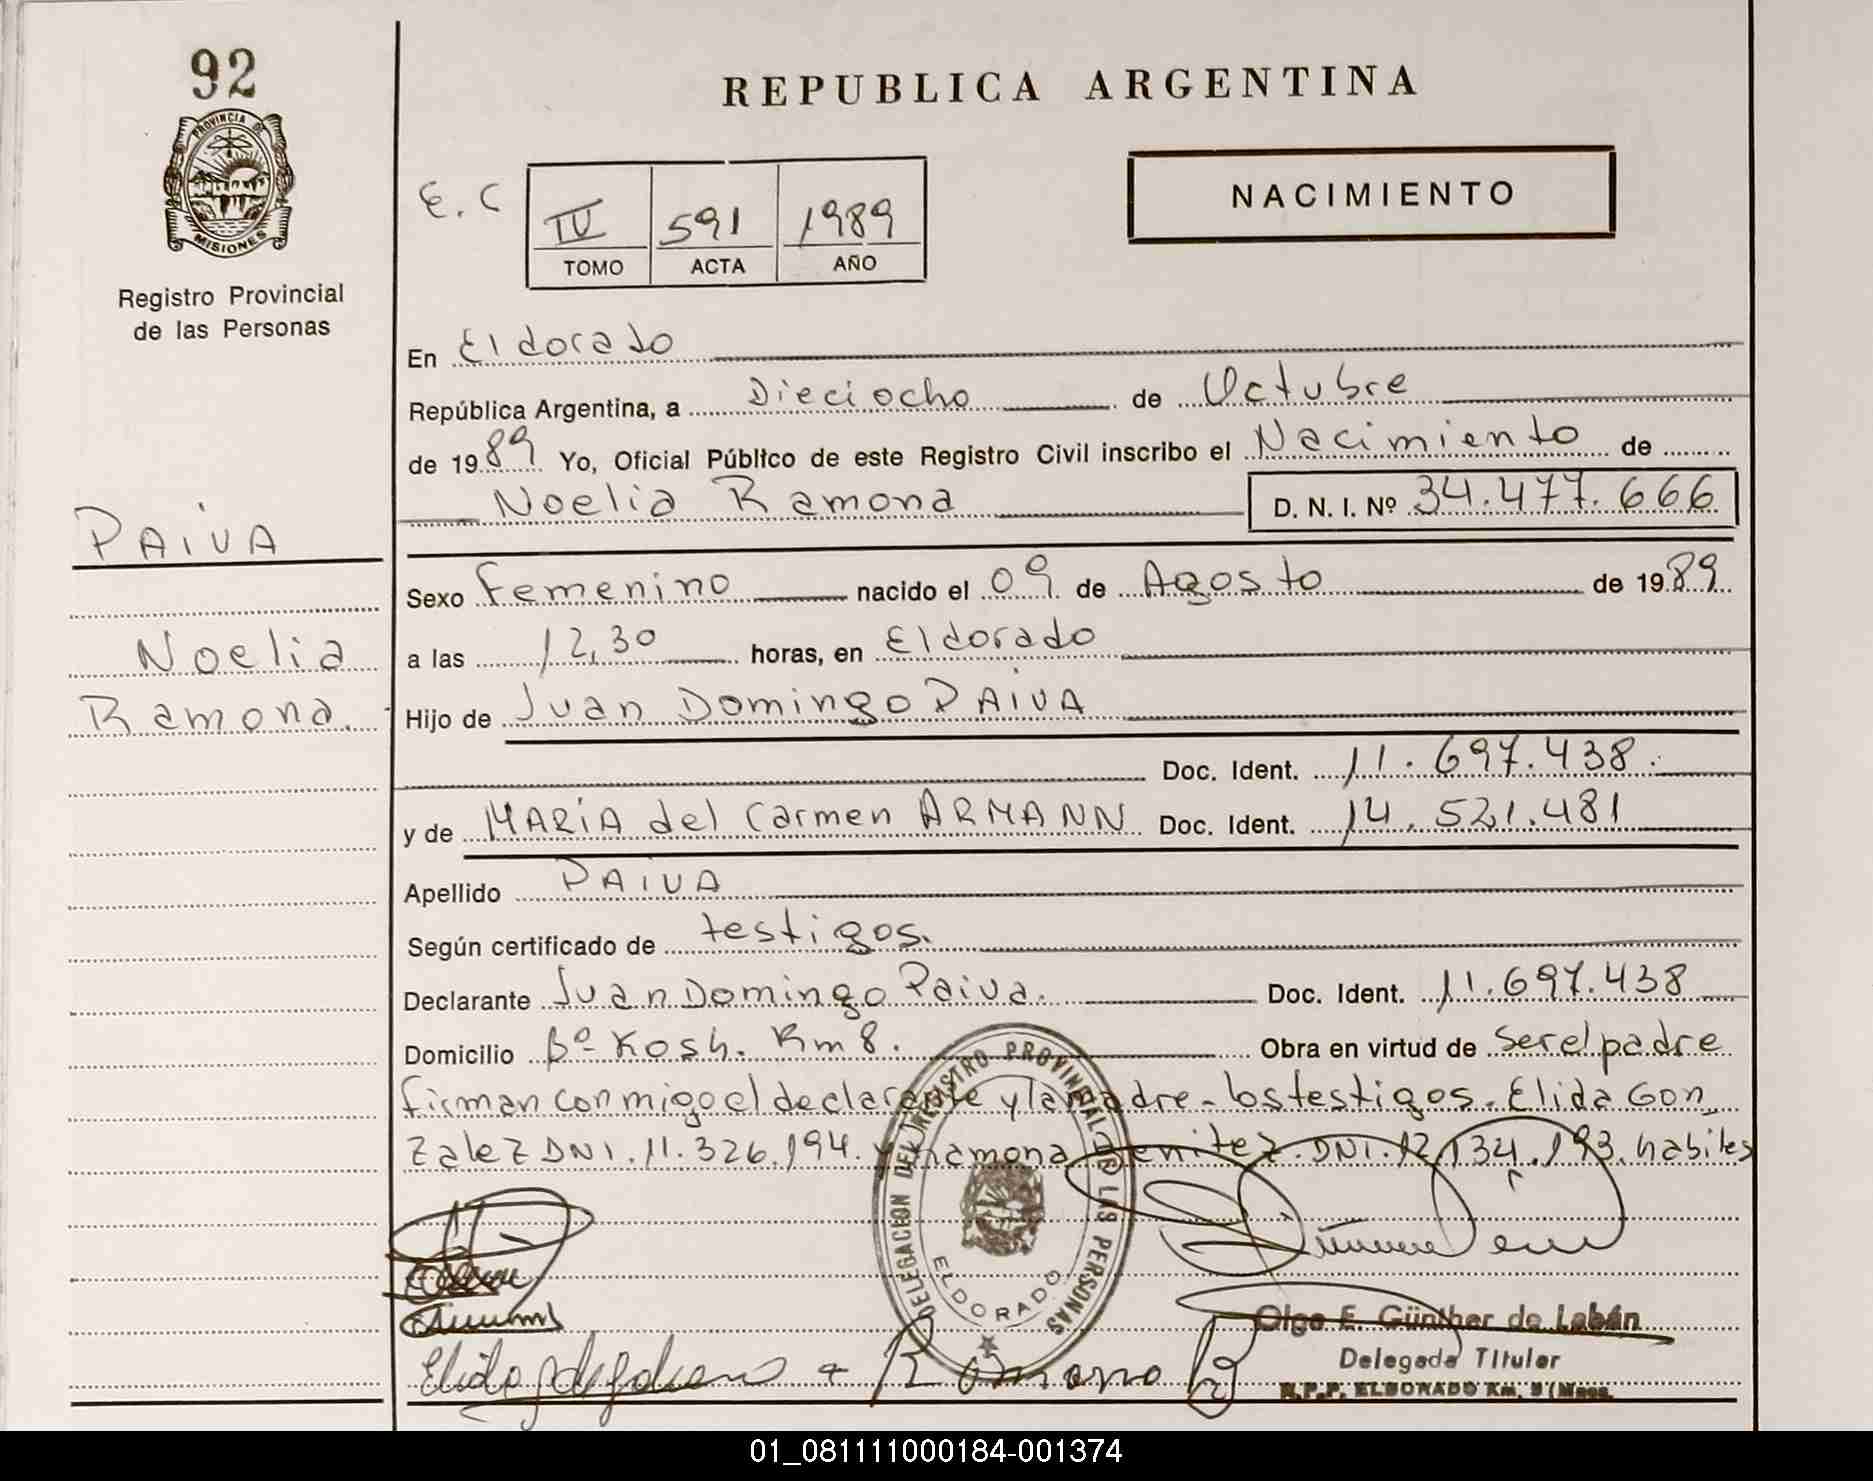 92
PROVINCIA DE
MISIONES
Registro Provincial
de las Personas
REPUBLICA ARGENTINA
NACIMIENTO
E.C
IV 591 1989
TOMO ACTA AÑO
En Eldorado
República Argentina, a Dieciocho de Octubre
de 1989 Yo, Oficial Público de este Registro Civil inscribo el Nacimiento de
Noelia Ramona D. N. I. Nº 34.477.666
PAIVA
Sexo Femenino nacido el 09 de Agosto de 1989
Noelia
a las 12,30 horas, en Eldorado
Ramona.
Hijo de Juan Domingo PAIVA
Doc. Ident. 11.697.438.
y de MARIA del Carmen ARMANN Doc. Ident. 14.521.481
Apellido PAIVA
Según certificado de testigos.
Declarante Juan Domingo Paiva. Doc. Ident. 11.697.438
Domicilio Bº Kosh. Km 8. Obra en virtud de ser el padre
firman conmigo el declarante y la madre - los testigos. Elida Gon
zalez DNI. 11.326.194. y Ramona Benitez. DNI. 12.134.193. habiles
DELEGACION DEL REGISTRO PROVINCIAL DE LAS PERSONAS
ELDORADO
Olga E. Günther de Labán
Delegada Titular
R.P.P. ELDORADO Km. 9 (Mnes.
Elida
Ramona B
01_081111000184-001374